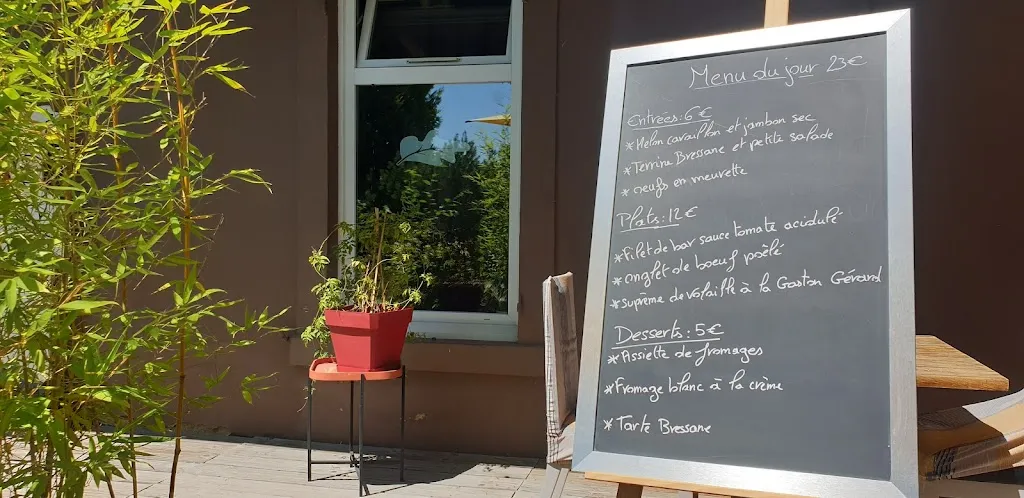 Menu du jour 23€
Entrées: 6€
* Melon cavaillon et jambon sec
* Terrine Bressane et petite salade
* oeufs en meurette
Plats: 12€
* Filet de bar sauce tomate acidulé
* onglet de boeuf poêlé
* suprème de volaille à la Gaston Gérard
Desserts: 5€
* Assiette de fromages
* Fromage blanc à la crème
* Tarte Bressane